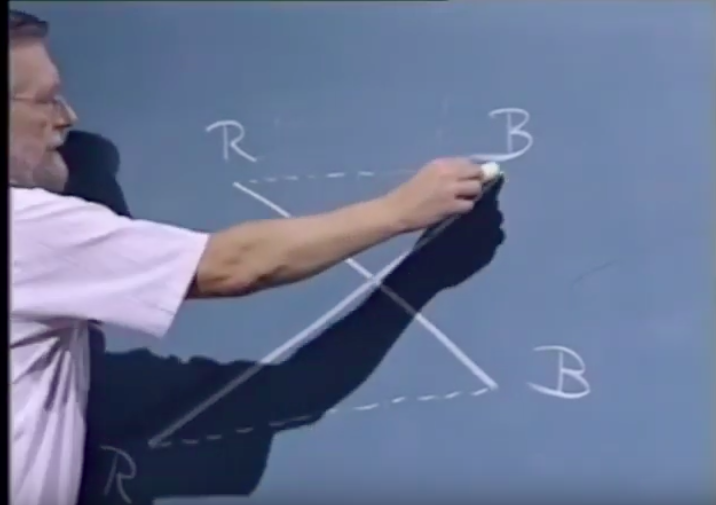 R B
B
R